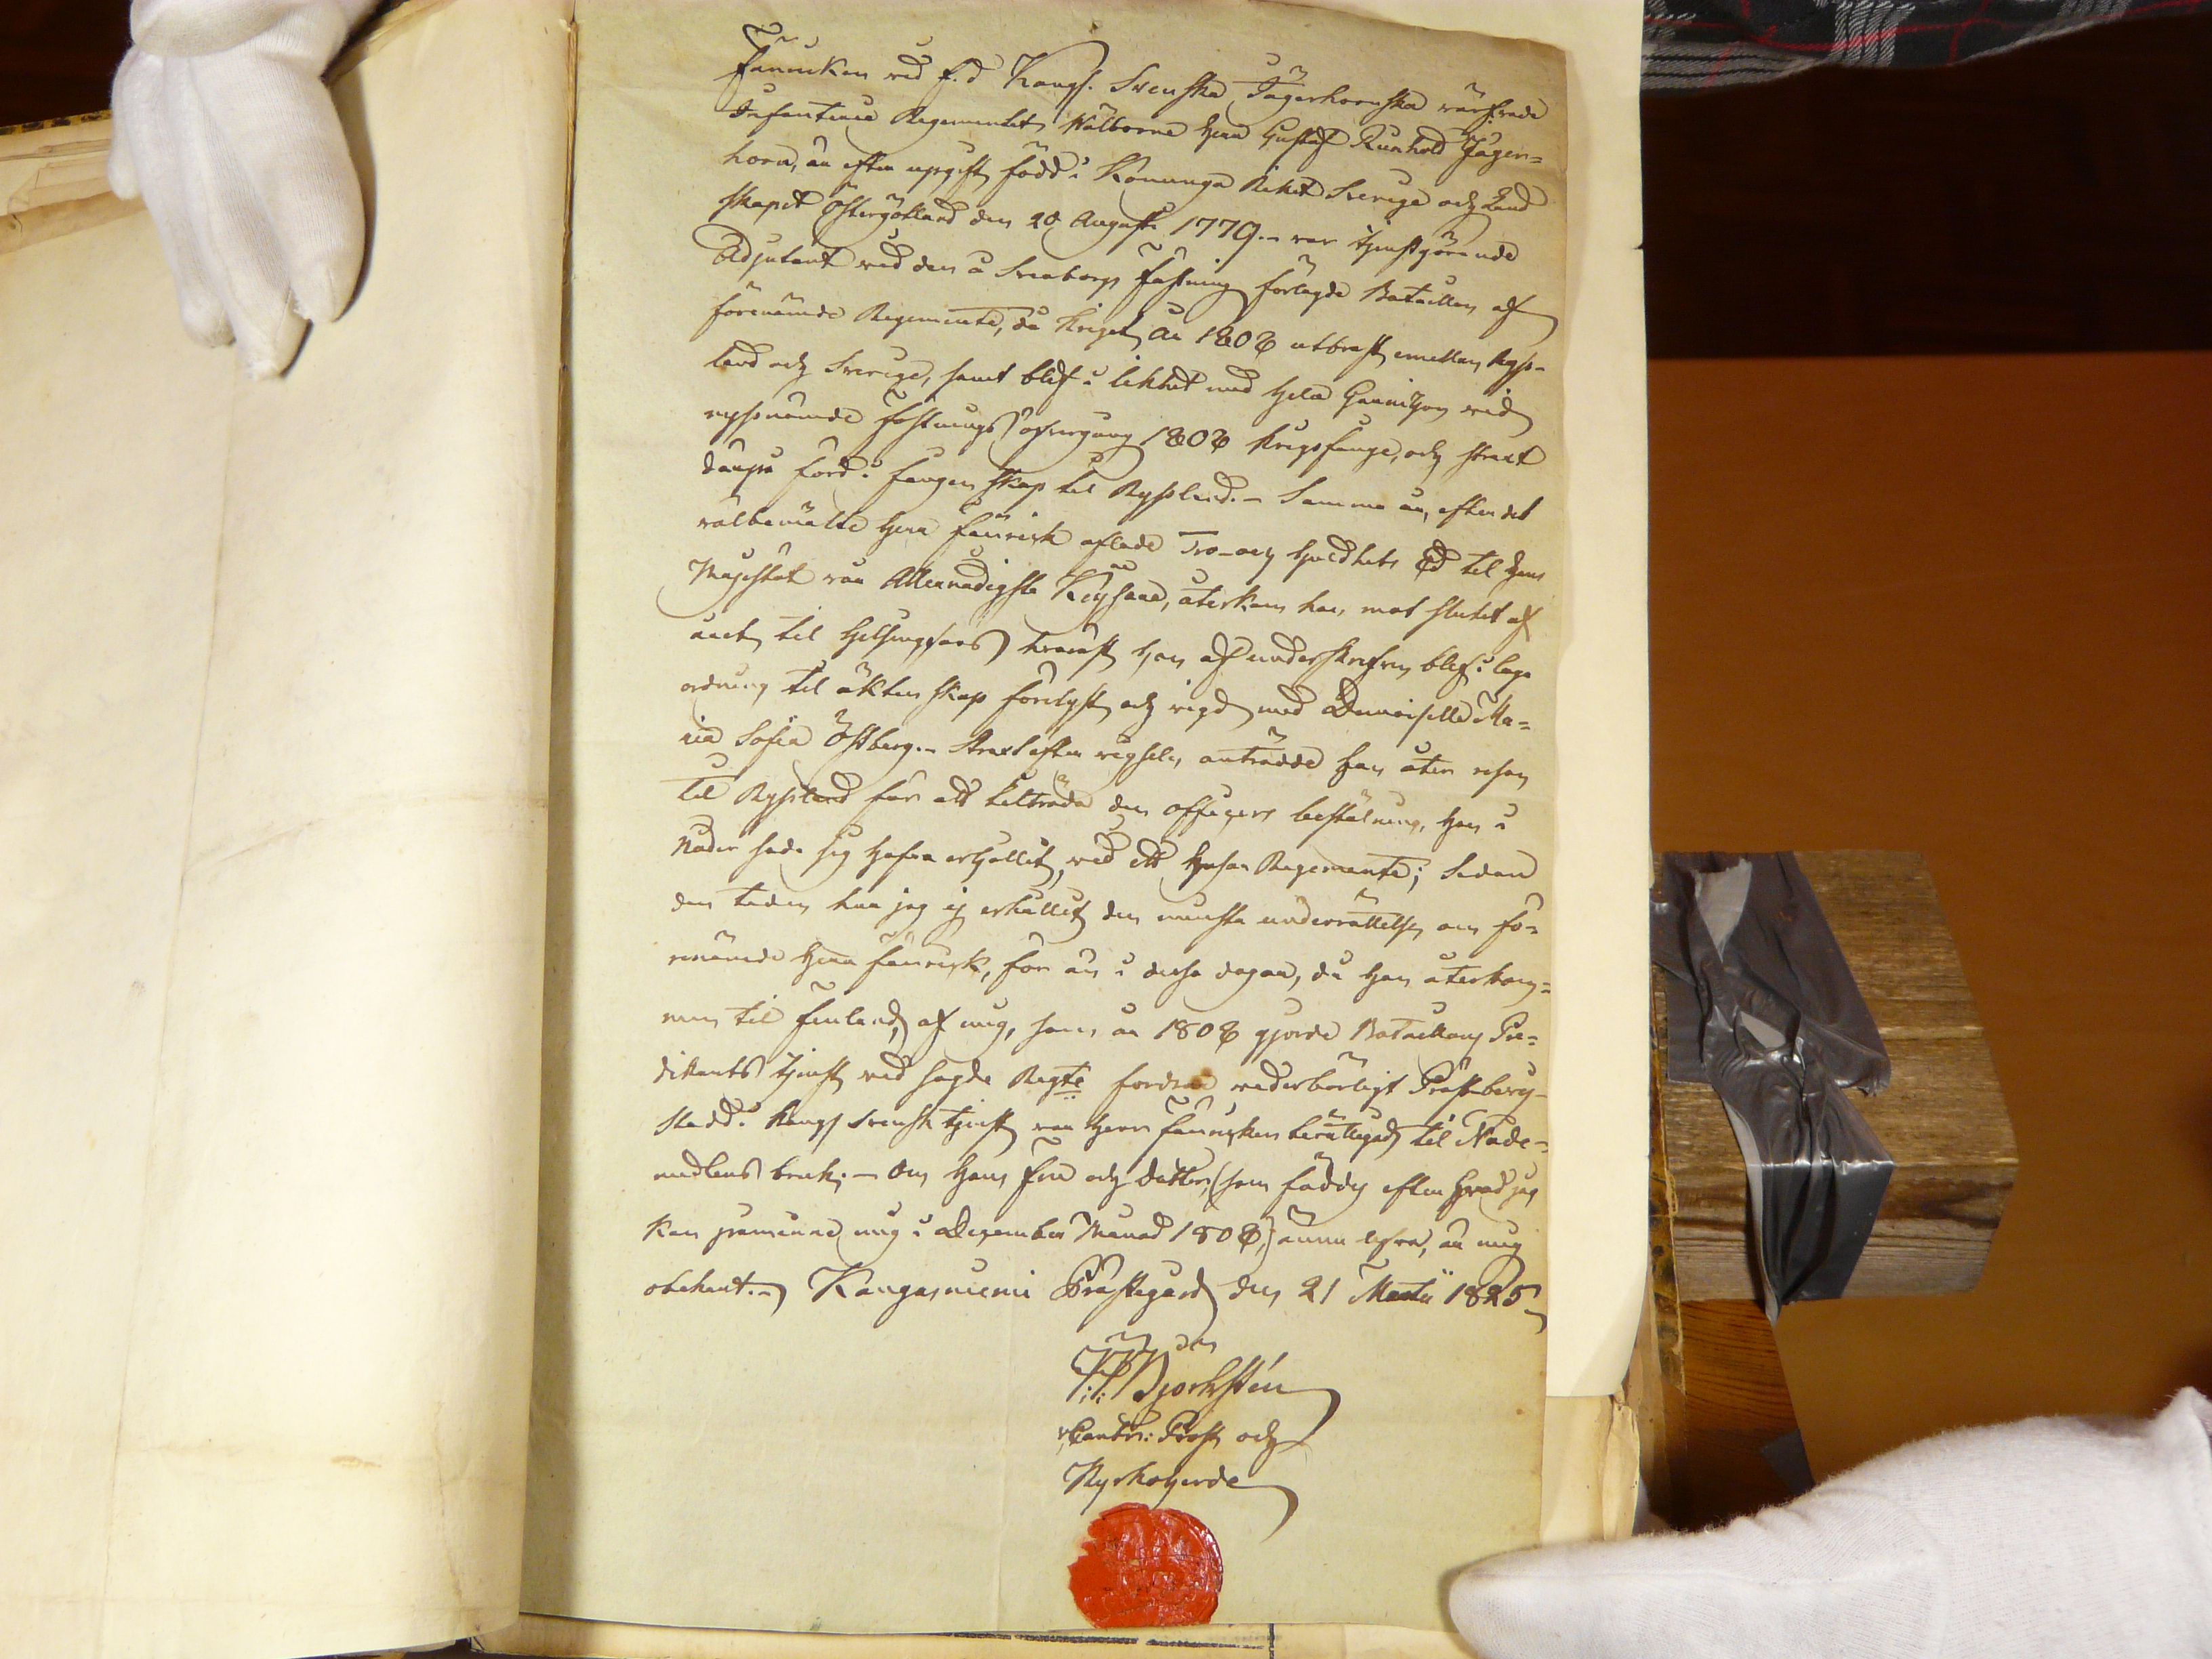 Fänricken vid f.d Kongl. Svenska Jägerhornska värfvade
Infanterie Regementet, Wälborne Herr Gustaf Reinhold Jäger=
horn, är efter uppgift född i Konunga Riket Sverige och Land
skapet Östergötland den 20 Augusti 1779. – var tjenstgörande
Adjutant vid den å Sveaborgs Fästning förlagde Bataillon af
förenämde Regemente, då kriget år 1808 utbrast emellan Ryss-
land och Sverige, samt blef i likhet med hela Garnizon vid
nyssnämde Fästnings öfvergång 1808 krigsfånge, och straxt
derpå förd i fångenskap til Ryssland. – Samma år, efter det
välbemälte Herr Fänrick aflade Tro- och huldhets Ed til Hans
Majestät vår Allernådigste Kejsare, återkom han, mot slutet af
året til Helsingfors, hvaräst han af undersk:n blef i laga
ordning til äktenskap förelyst och vigd med Demoiselle Ma=
ria Sofia Östberg. – Straxt efter vigseln anträdde han åter resan
til Ryssland för att tilträda den officers beställning, han i
Nåder sade sig hafva erhållit, vid ett Husar Regemente; Sedan
den tiden har jag ej erhållit den minsta underrättelse om fö=
renämde Herr Fänrick, för än i dessa dagar, då han återkom=
men til Finland, af mig, som år 1808 gjorde Bataillons Pre=
dikants tjenst vid sagde Regte fordrar vederbörligt Prästbevis
stadd i Kongl Svensk tjenst var Herr Fänricken berättigad til Nade-
medlens bruk; – Om hans fru och dotter, (som föddes efter hvad jag
kan påminna mig i December Månad 1808,) ännu lefva, är mig
obekant. – Kangasniemi Prästegård den 21 Martii 1825
Björkstén
Contr: Prost och
Kyrkoherde